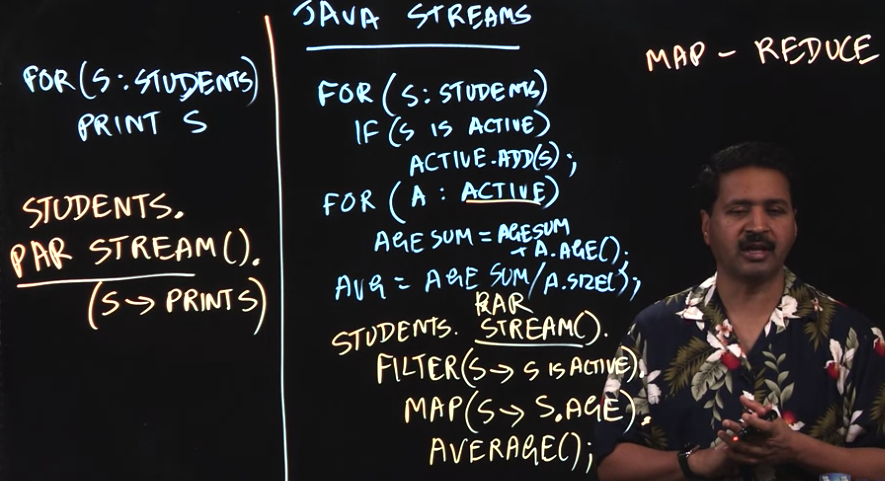 JAVA STREAMS
FOR(S:STUDENTS)
PRINT S
STUDENTS.
PAR STREAM().
(S→PRINTS)
FOR(S:STUDENTS)
IF(S IS ACTIVE)
ACTIVE.ADD(S);
FOR(A:ACTIVE)
AGESUM=AGESUM
+A.AGE();
AVG=AGE SUM/A.SIZE();
PAR
STUDENTS. STREAM().
FILTER(S→S IS ACTIVE).
MAP(S→S.AGE).
AVERAGE();
MAP-REDUCE